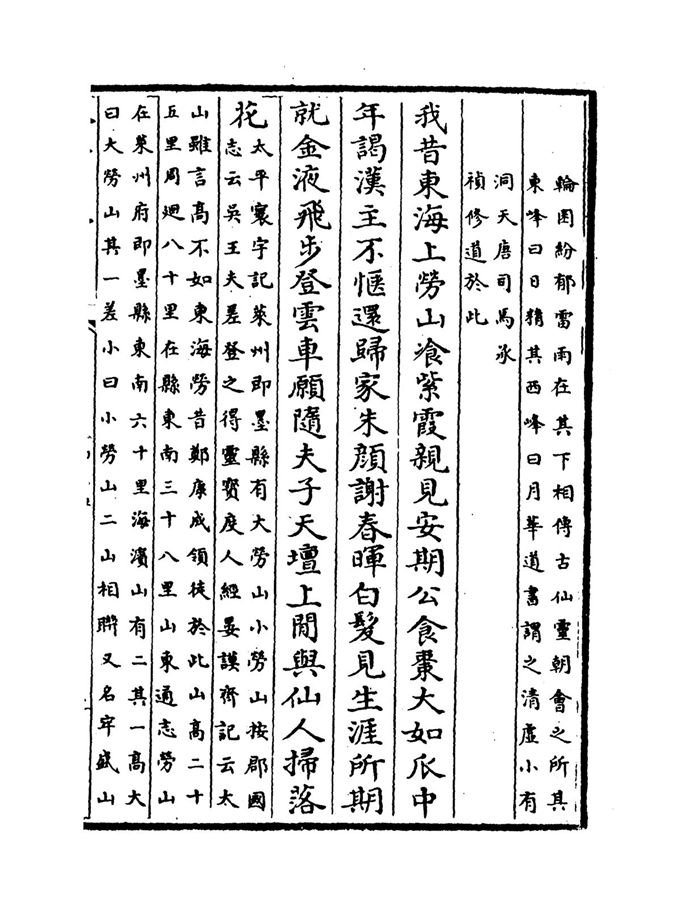 輪囷紛郁雷雨在其下相傳古仙靈朝會之所其
東峰曰日精其西峰曰月華道書謂之清虛小有
洞天唐司馬承
禎修道於此
我昔東海上勞山飡紫霞親見安期公食棗大如瓜中
年謁漢主不愜還歸家朱顔謝春暉白髮見生涯所期
就金液飛步登雲車願隨夫子天壇上閒與仙人掃落
花
太平寰宇記萊州即墨縣有大勞山小勞山按郡國
志云吳王夫差登之得靈寳度人經晏謨齊記云太
山雖言髙不如東海勞昔鄭康成領徒於此山髙二十
五里周廻八十里在縣東南三十八里山東通志勞山
在萊州府即墨縣東南六十里海濱山有二其一髙大
曰大勞山其一差小曰小勞山二山相聨又名牢盛山